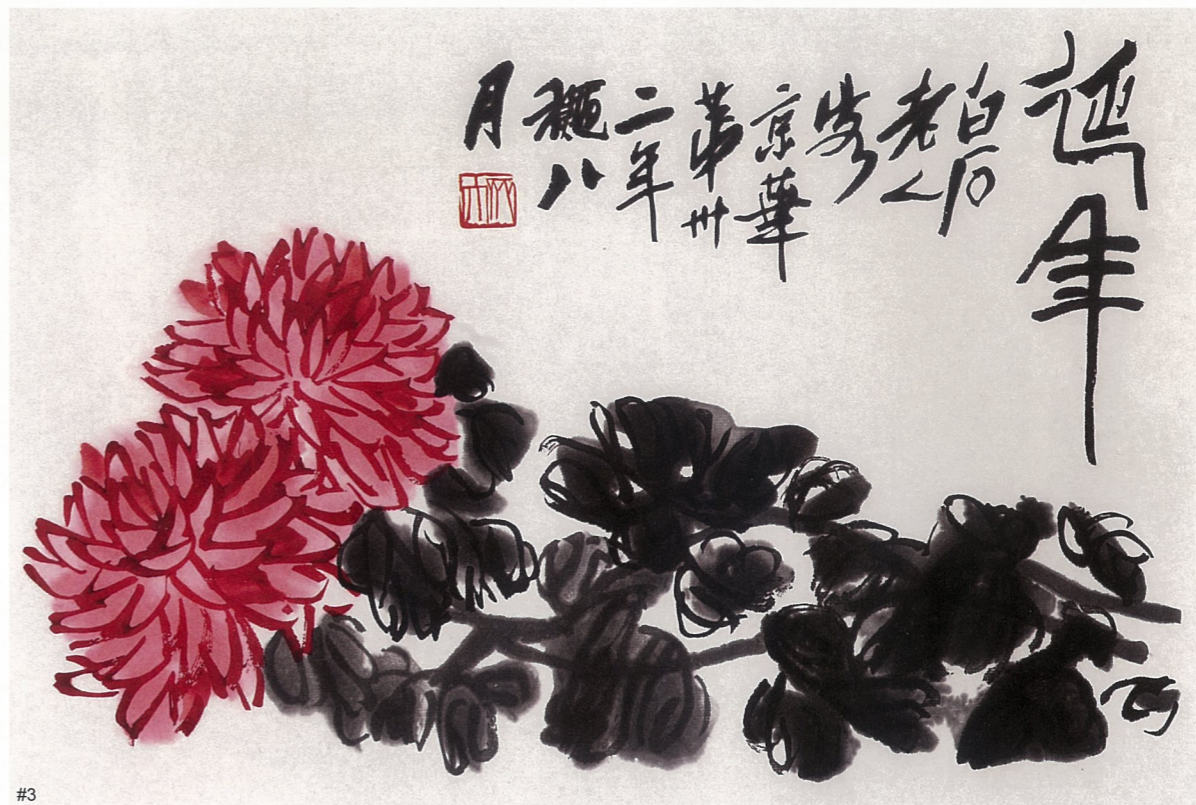 延年
白石
老人
客
京華
第卅
二年
穐八
月
#3